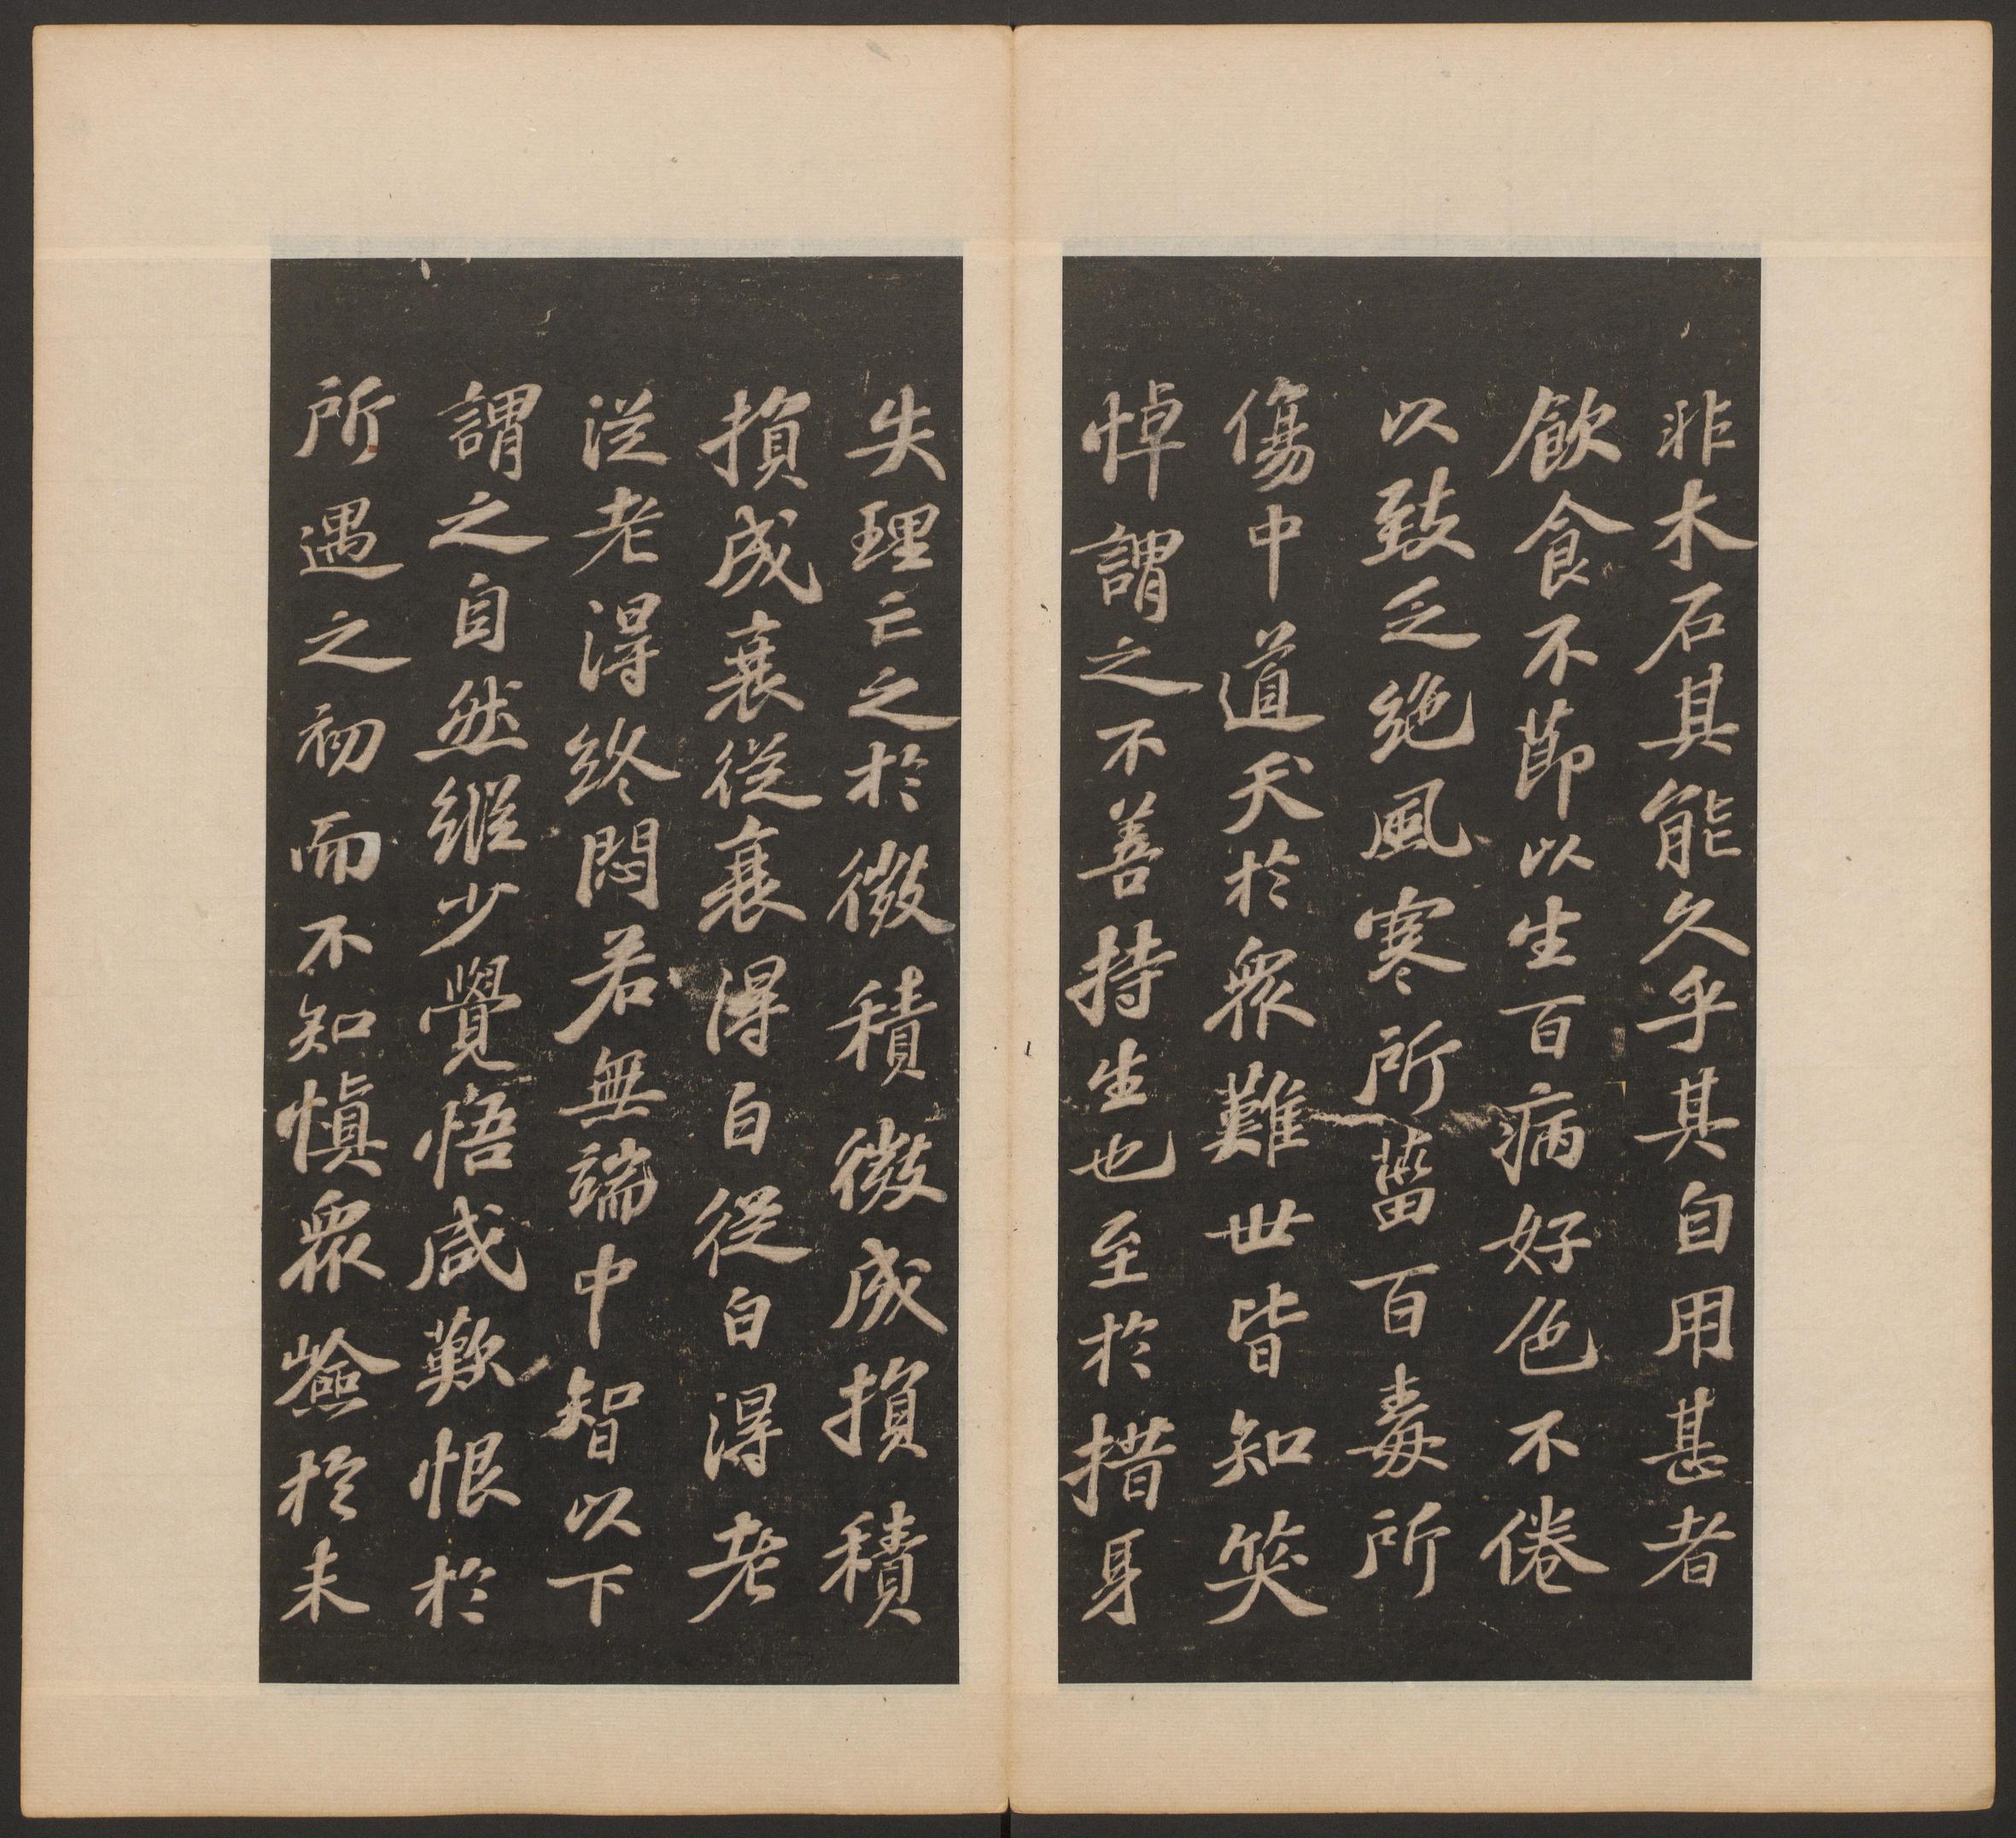 非木石其能久乎其自用甚者
飲食不節以生百病好色不倦
以致乏絕風寒所葘百毒所
傷中道夭於衆難世皆知笑
悼謂之不善持生也至於措身
失理亡之於微積微成損積
損成衰從衰得白從白得老
從老得終悶若無端中智以下
謂之自然縱少覺悟咸歎恨於
所遇之初而不知慎衆嶮於未